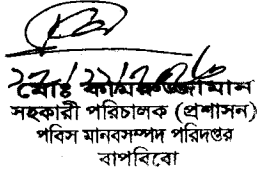 মোঃ কামরুজ্জামান
সহকারী পরিচালক (প্রশাসন)
পবিস মানবসম্পদ পরিদপ্তর
বাপবিবো